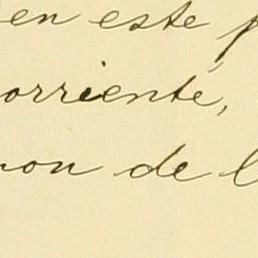 en este p
orriente,
ron de l